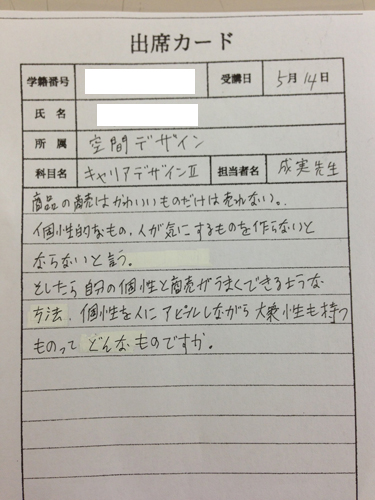 出席カード
学籍番号 受講日 5月14日
氏名
所属 空間デザイン
科目名 キャリアデザインⅡ 担当者名 成実先生
商品の商売はかわいいものだけは売れない。
個性的なもの、人が気にするものを作らないと
ならないと言う。
としたら自分の個性と商売がうまくできるような
方法、個性を人にアピールしながら大衆性も持つ
ものって どんなものですか。